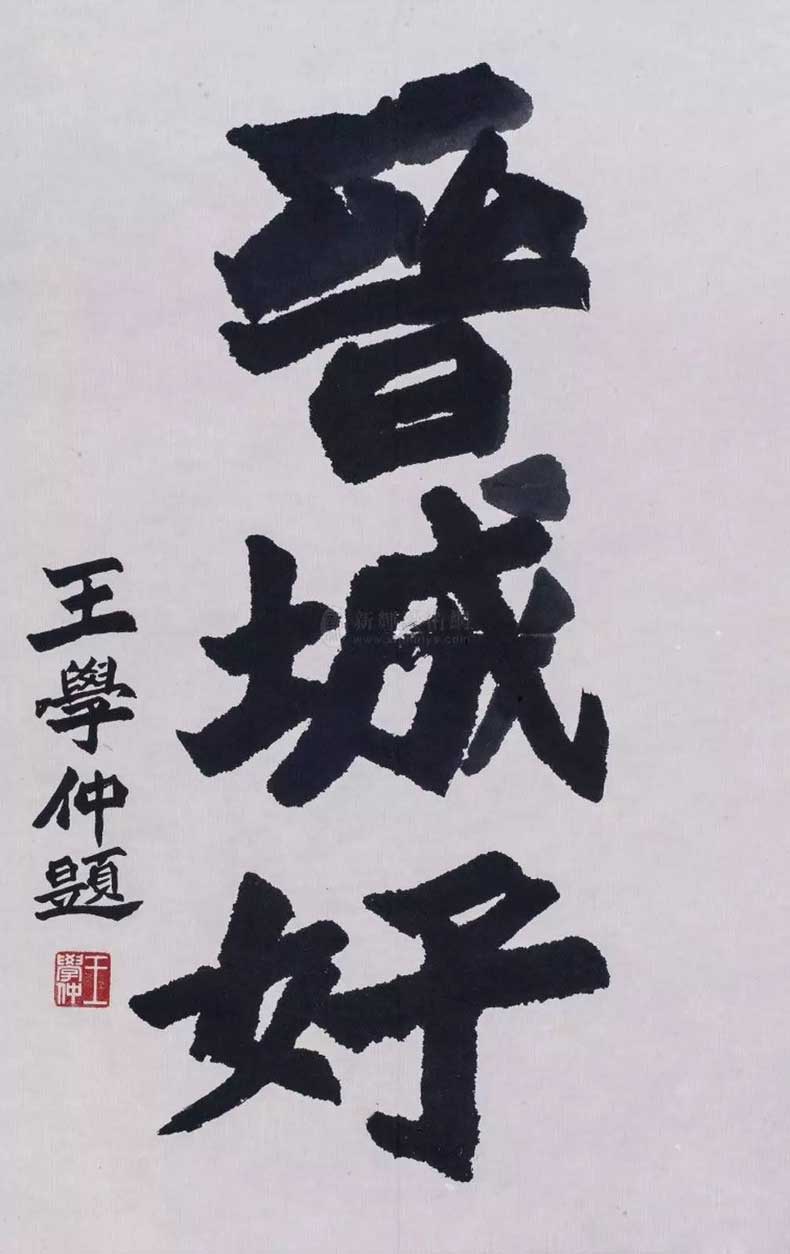 晋城好
王學仲題
王學仲